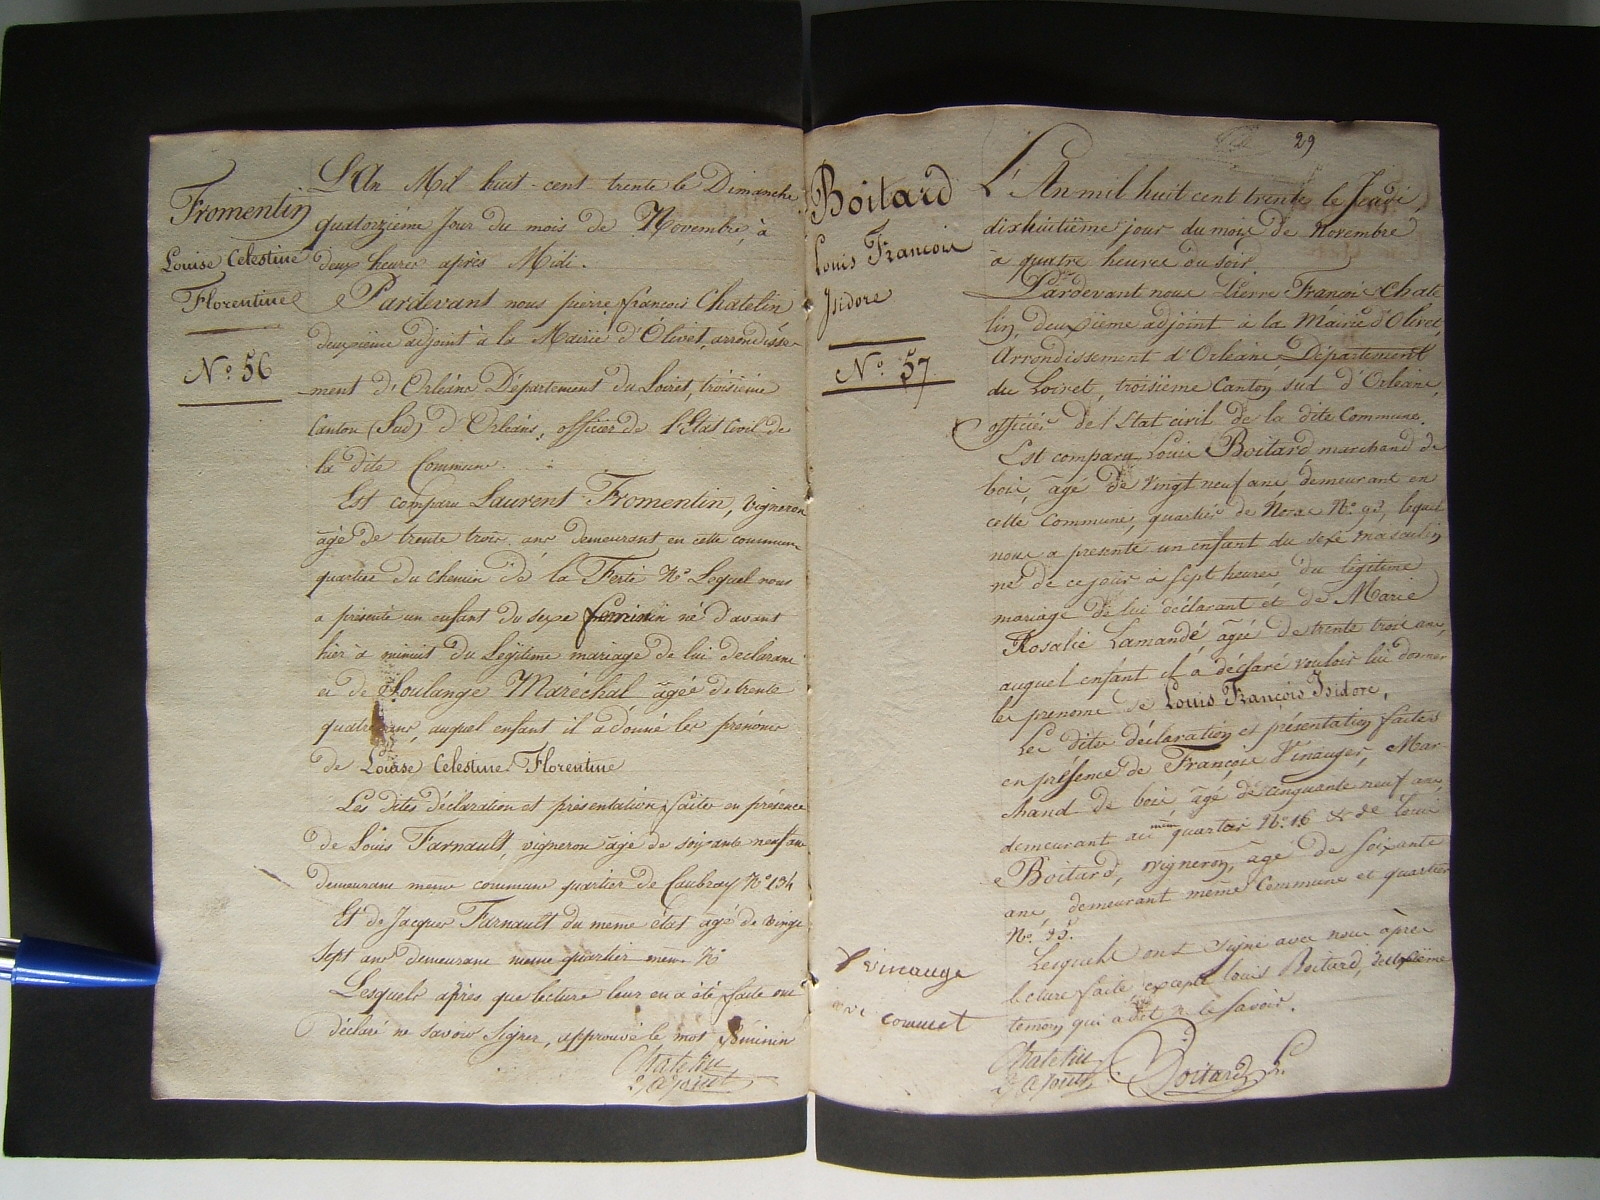 Fromentin
Louise Celestine
Florentine
N° 56
L'An Mil huit-cent trente le Dimanche
quatorzième Jour du mois de Novembre, à
deux heures après Midi.
Pardevant nous pierre françois Chatelin
deuxième adjoint à la Mairie d'Olivet, arrondisse-
ment d'Orléans Département du Loiret, troisième
Canton (Sud) d'Orléans, officier de l'Etat Civil de
la dite Commune.
Est comparu Laurent Fromentin, vigneron
âgé de trente trois ans demeurant en cette commune
quartier du chemin de la Ferté N° Lequel nous
a présenté un enfant du sexe feminin né d'avant
hier à minuit du Légitime mariage de lui declarant
et de Soulange Maréchal âgée de trente
quatre ans, auquel enfant il a donné les prénoms
de Louise Celestine Florentine
Les dites déclaration et présentation faites en présence
de Louis Farnault, vigneron âgé de soixante neuf ans
demeurant meme commune quartier de Caubray N° 134
Et de Jacques Farnault du même état âgé de vingt
sept ans demeurant meme quartier meme N°
Lesquels après que lecture leur en a été faite ont
déclaré ne savoir signer, approuvé le mot féminin
Chatelin
2e adjoint
29
Boitard
Louis François
Isidore
N° 57
L'An mil huit cent trente le Jeudi
dixhuitième jour du mois de Novembre
à quatre heures du soir.
Pardevant nous Pierre François Chate
lin, deuxième adjoint à la Mairie d'Olivet,
Arrondissement d'Orléans, Département
du Loiret, troisième Canton sud d'Orléans,
officier de l'Etat civil de la dite Commune.
Est comparu Louis Boitard marchand de
bois, âgé de vingt neuf ans demeurant en
cette Commune, quartier de N° 93, lequel
nous a présenté un enfant du sexe masculin
né de ce jour à sept heures du légitime
mariage de lui déclarant et de Marie
Rosalie Lamandé, âgée de trente trois ans,
auquel enfant il a déclaré vouloir lui donner
les prenoms de Louis François Isidore,
Les dites déclaration et présentation faites
en présence de François Vinauger, Mar-
chand de bois, âgé de cinquante neuf ans,
demeurant au même quartier N° 16 & de Louis
Boitard, vigneron, âgé de soixante
ans, demeurant même Commune et quartier
N° 95.
Lesquels ont signé avec nous après
lecture faite excepté louis Boitard, deuxième
temoin qui a dit ne le savoir.
vinauge
Chatelin
2e adjoint
Boitard L.